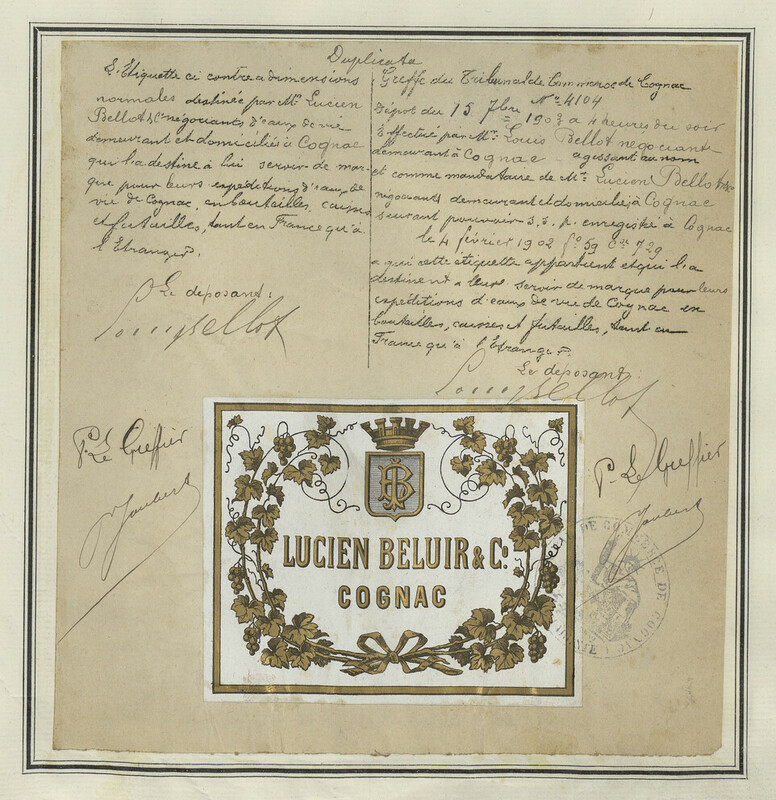 Duplicata
L'Etiquette ci contre a dimensions
normales destinée par Mr. Lucien
Bellot & Cie négociants d'eaux de vie
demeurant et domiciliés à Cognac
qui la destine à lui servir de mar-
que pour leurs expéditions d'eaux de
vie de Cognac, en bouteilles, caisses
et futailles, tant en France qu'à
l'Etranger.
Le déposant:
Louis Bellot
Greffe du Tribunal de Commerce de Cognac
No. 4104
Dépot du 15 7bre 1903 à 4 heures du soir
Effectué par Mr. Louis Bellot négociant
demeurant à Cognac agissant au nom
et comme mandataire de Mr. Lucien Bellot & Cie
négociants demeurant et domiciliés à Cognac
suivant pouvoir s.s.p. enregistré à Cognac
le 4 février 1902 fo. 59 Ce 729
a qui cette étiquette appartient et qui la
destinent a leur servir de marque pour leurs
expéditions d'eaux de vie de Cognac en
bouteilles, caisses et futailles, tant en
France qu'à l'Etranger.
Le déposant:
Louis Bellot
P. Le Greffier
P. Le Greffier
LUCIEN BELUIR & Co.
COGNAC
DE COMMERCE DE COGNAC